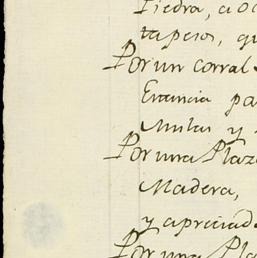 Piedra, a oc
ta pesos, qu
Por un corral
Estancia pa
Mulas y
Por una Plaz
Madera,
y apreciad
Por una Pla